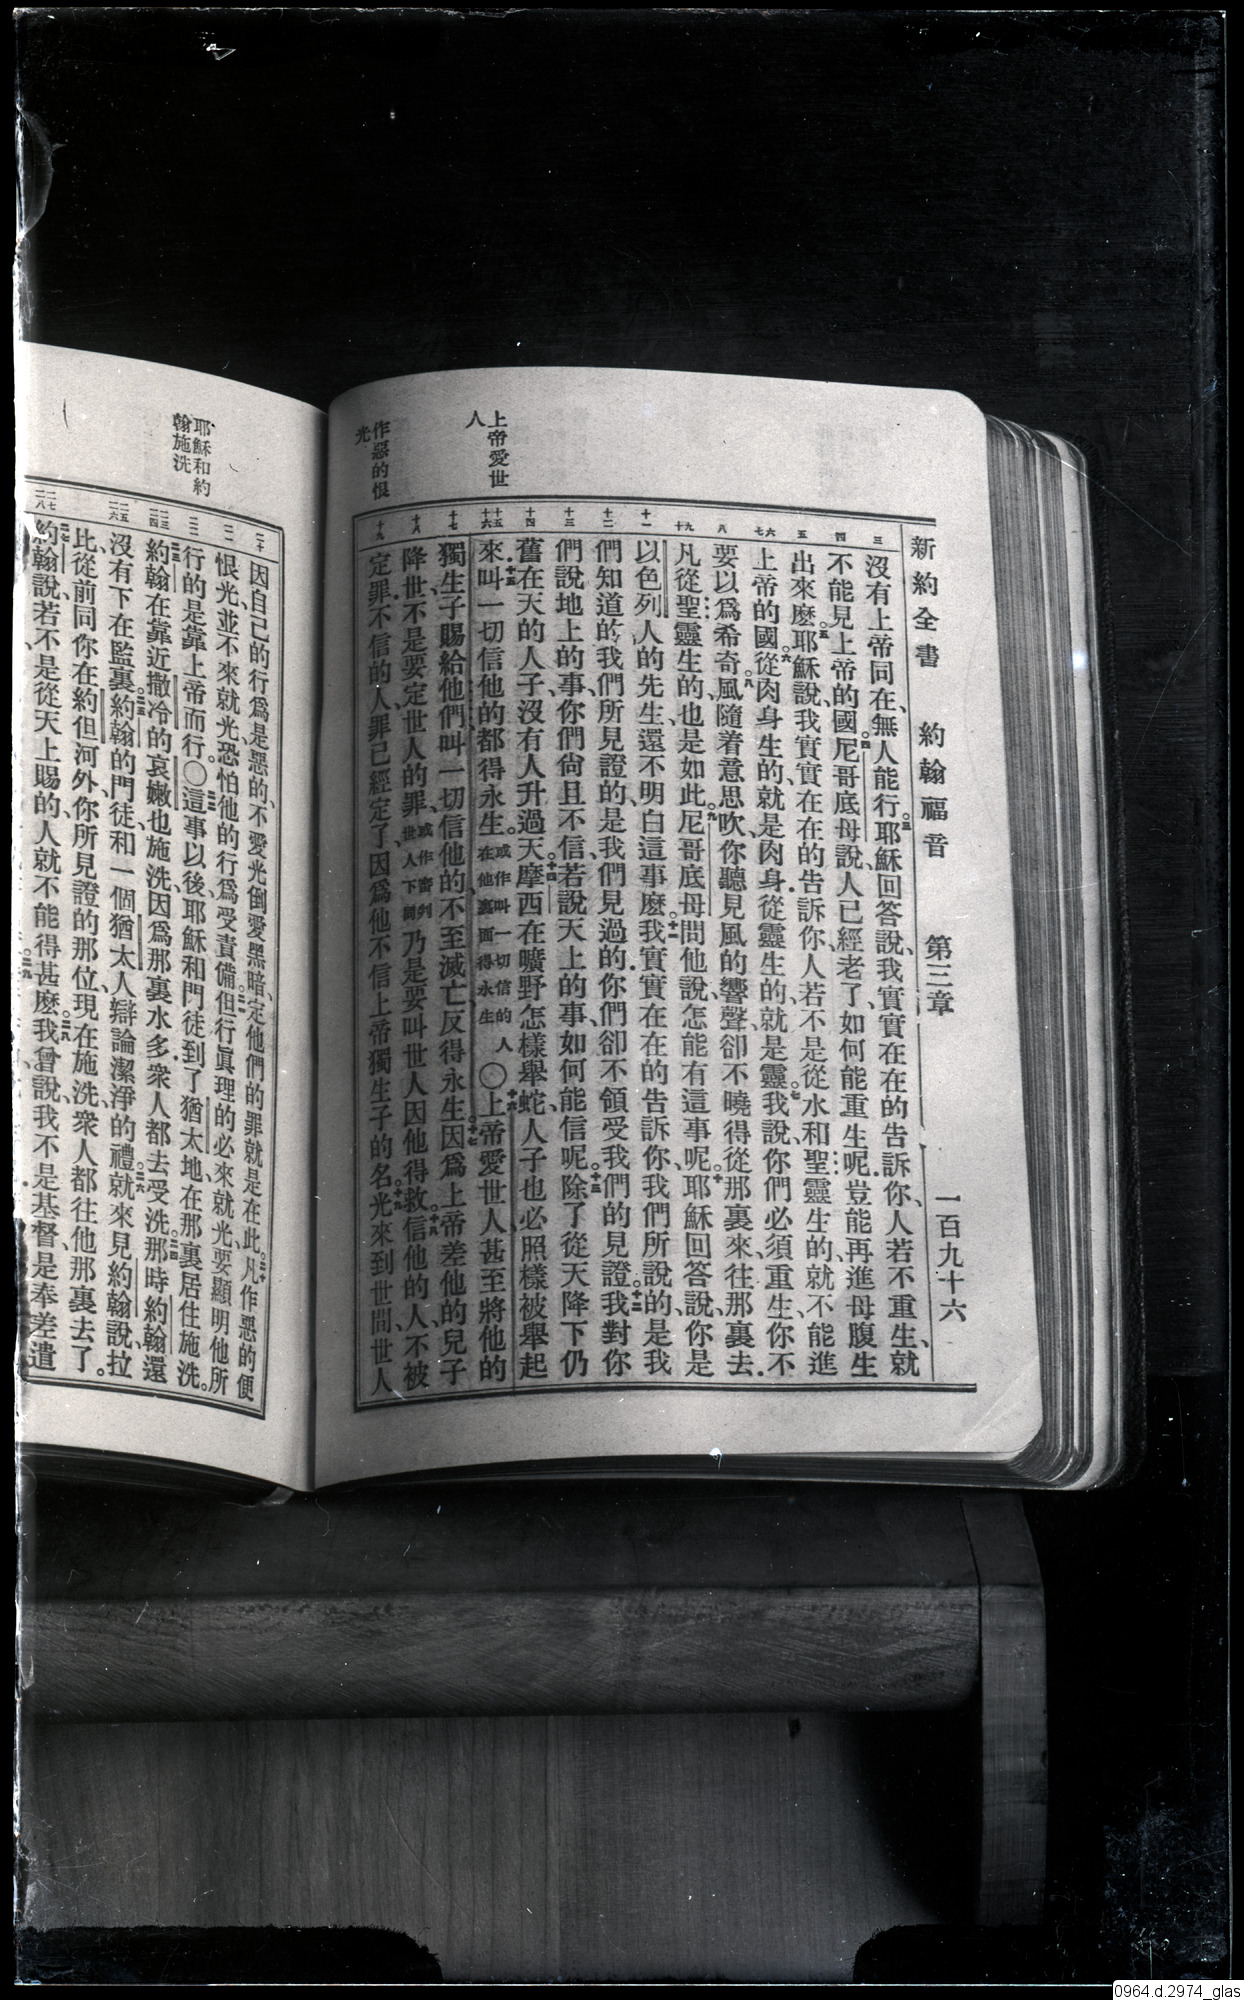 新約全書 約翰福音 第三章 一百九十六
三
沒有上帝同在、無人能行。三耶穌回答說、我實實在在的告訴你、人若不重生、就
四
不能見上帝的國。四尼哥底母說、人已經老了、如何能重生呢、豈能再進母腹生
五
出來麽。五耶穌說、我實實在在的告訴你、人若不是從水和聖靈生的、就不能進
六七
上帝的國。六從肉身生的、就是肉身、從靈生的、就是靈。七我說、你們必須重生、你不
八
要以爲希奇。八風隨着意思吹、你聽見風的響聲、卻不曉得從那裏來、往那裏去、
九十
凡從聖靈生的、也是如此。九尼哥底母問他說、怎能有這事呢。十耶穌回答說、你是
十一
以色列人的先生、還不明白這事麽。十一我實實在在的告訴你、我們所說的、是我
十二
們知道的、我們所見證的、是我們見過的、你們卻不領受我們的見證。十二我對你
十三
們說地上的事、你們尙且不信、若說天上的事、如何能信呢。十三除了從天降下仍
十四
舊在天的人子、沒有人升過天。十四摩西在曠野怎樣舉蛇、人子也必照樣被舉起
十五十六
來。十五叫一切信他的都得永生。或作叫一切信的人在他裏面得永生〇十六上帝愛世人、甚至將他的
上帝愛世人
十七
獨生子賜給他們、叫一切信他的、不至滅亡、反得永生。十七因爲上帝差他的兒子
十八
降世、不是要定世人的罪、或作審判世人下同乃是要叫世人因他得救。十八信他的人、不被
十九
定罪、不信的人、罪已經定了、因爲他不信上帝獨生子的名。十九光來到世間、世人
作惡的恨光
二十
因自己的行爲是惡的、不愛光倒愛黑暗、定他們的罪就是在此。二十凡作惡的便
二一
恨光、並不來就光、恐怕他的行爲受責備。二一但行眞理的必來就光、要顯明他所
二二
行的是靠上帝而行。〇二二這事以後、耶穌和門徒到了猶太地、在那裏居住施洗。
耶穌和約翰施洗
二三二四
二三約翰在靠近撒冷的哀嫩也施洗、因爲那裏水多、衆人都去受洗。二四那時約翰還
二五二六
沒有下在監裏。二五約翰的門徒和一個猶太人辯論潔淨的禮。二六就來見約翰說、拉
比、從前同你在約但河外、你所見證的那位、現在施洗、衆人都往他那裏去了。
二七二八
二七約翰說、若不是從天上賜的、人就不能得甚麽。二八我曾說、我不是基督、是奉差遣
0964.d.2974_glas